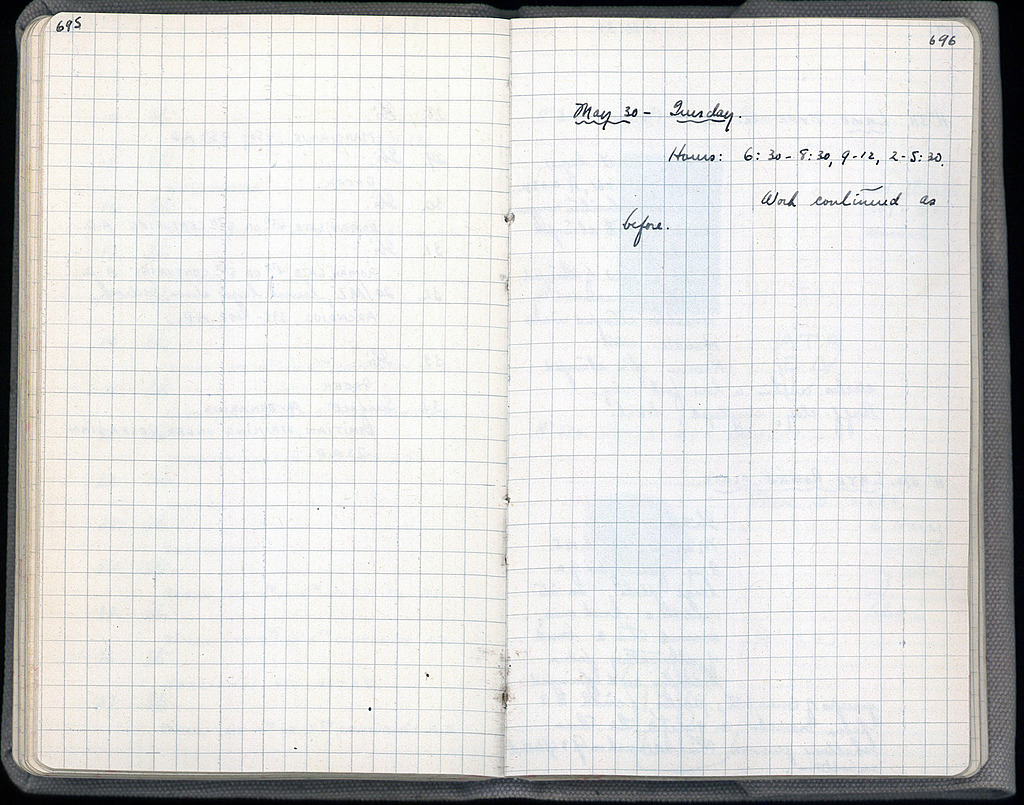 695
696
May 30 - Tuesday.
Hours: 6:30-8:30, 9-12, 2-5:30.
Work continued as
before.